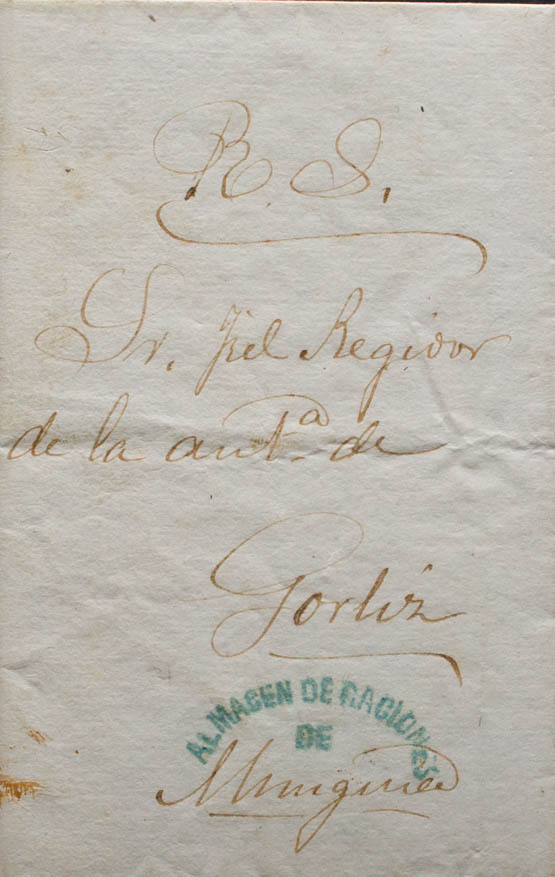 R. S.
Sr. Fiel Regidor
de la ant.ª de
Gorliz
ALMACEN DE RACIONES
DE
Munguia